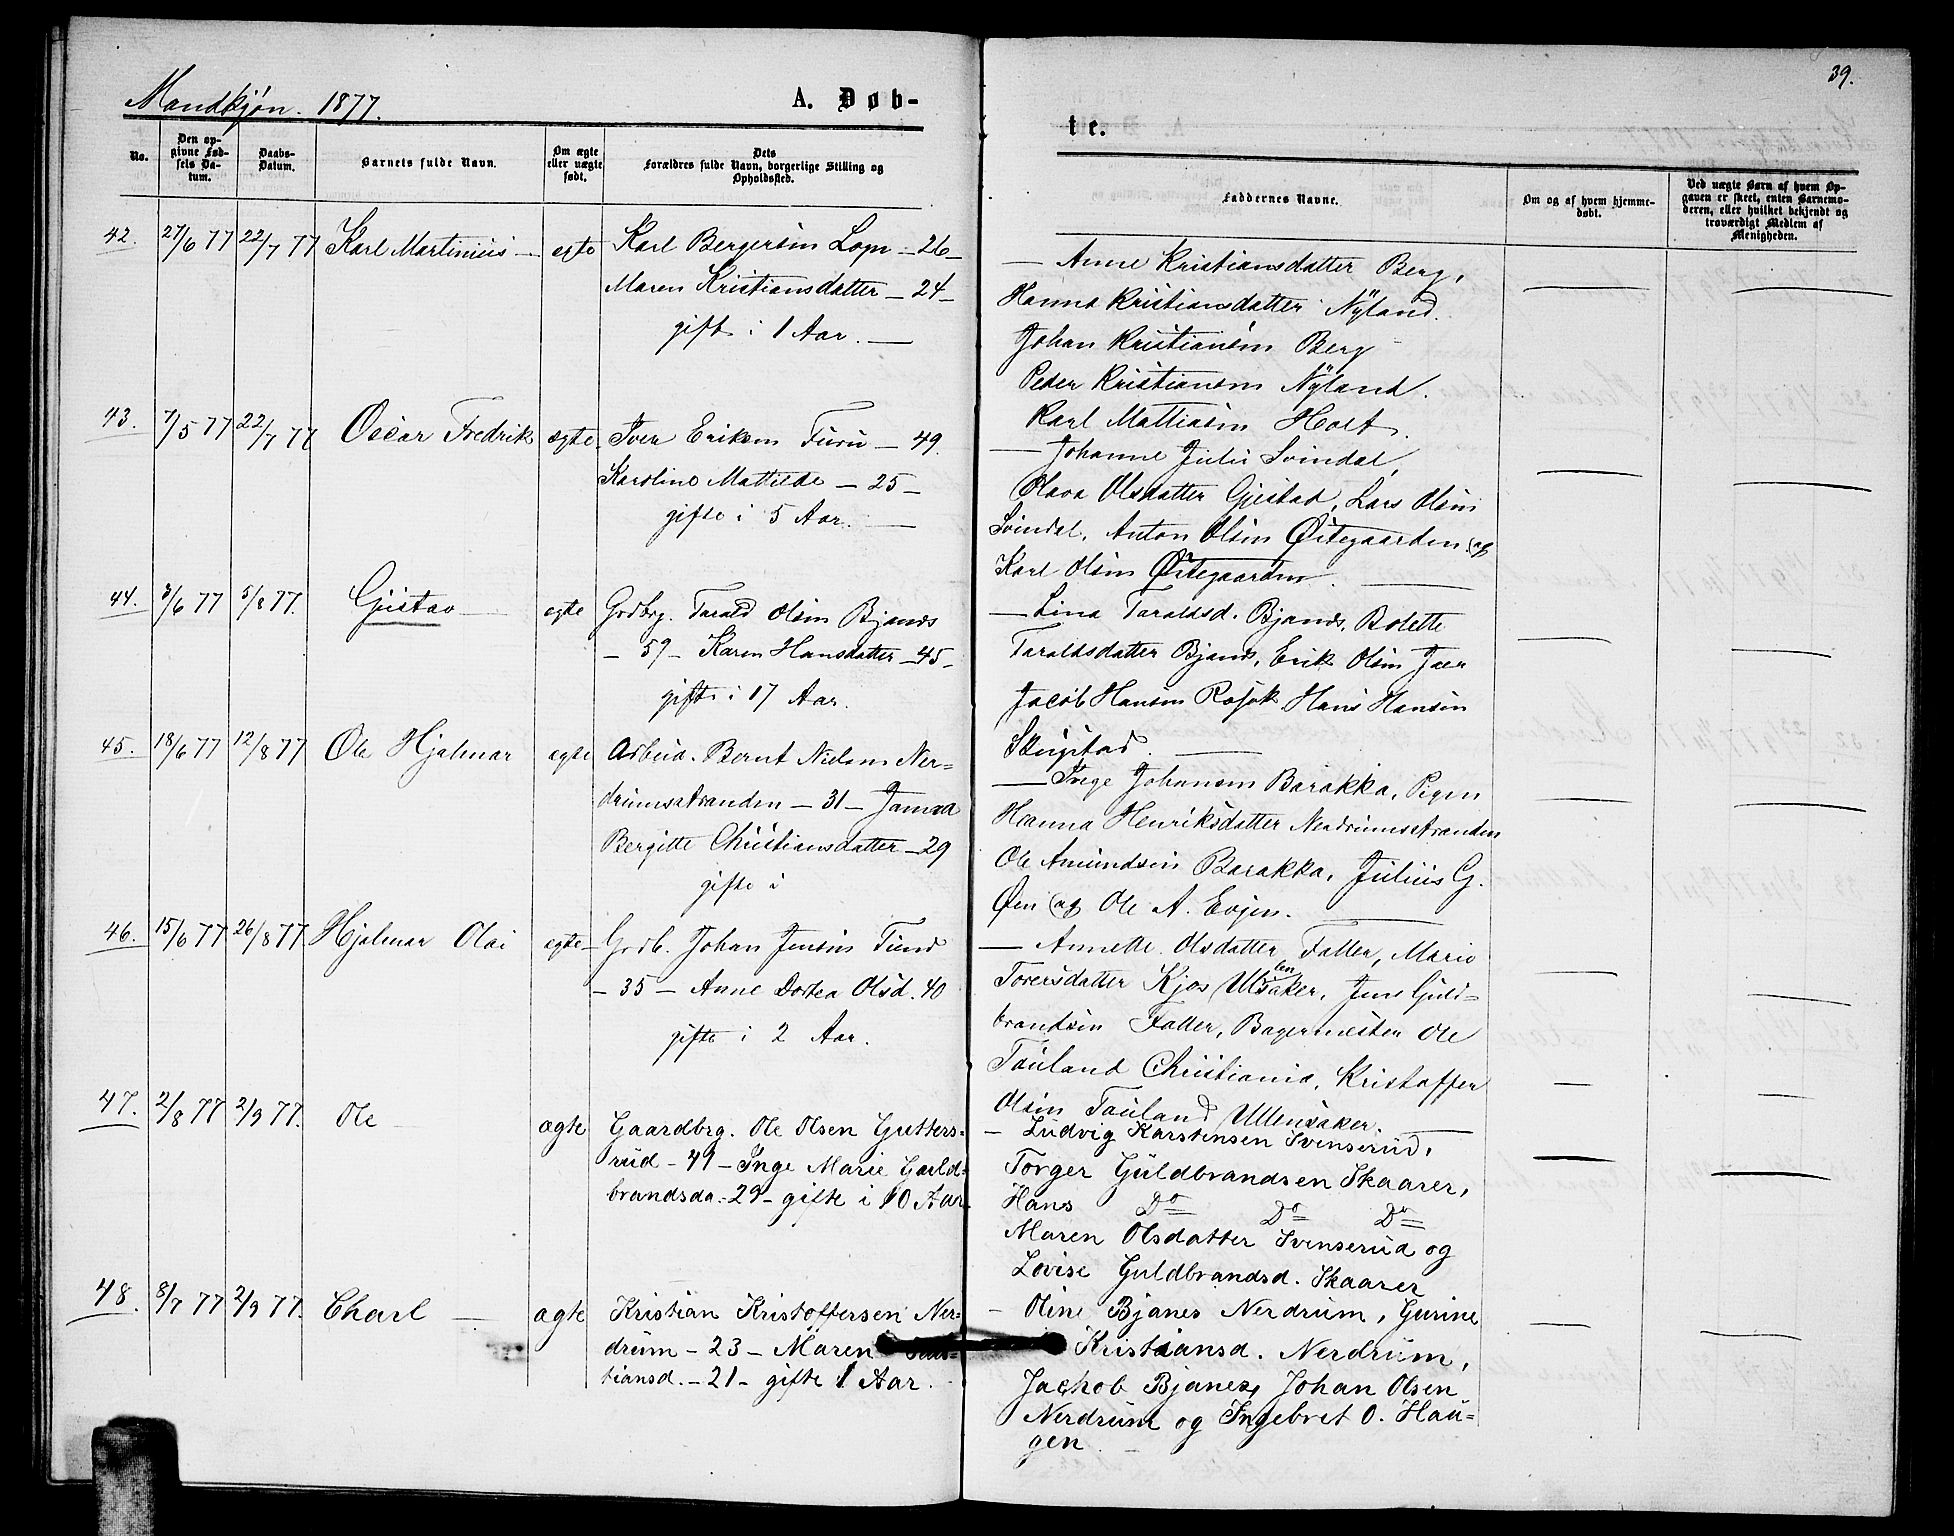 39.
Mandkjøn. 1877.
A. Døb-
te.
No.
Den op-
givne Fød-
sels Da-
tum.
Daabs-
Datum.
Barnets fulde Navn.
Om ægte
eller uægte
født.
Dets
Forældres fulde Navn, borgerlige Stilling og
Opholdssted.
Faddernes Navne.
Om og af hvem hjemme-
døbt.
Ved uægte Børn af hvem Op-
gaven er skeet, enten Barnemo-
deren, eller hvilket bekjendt og
troværdigt Medlem af
Menigheden.
42. 27/6 77 22/7 77 Karl Martinius — egte
Karl Bergersen Lopn — 26 —
Maren Kristiansdatter — 24 —
gifte i 1 Aar. —
— Anne Kristiansdatter Berg,
Hanna Kristiansdatter Nÿland.
Johan Kristiansen Berg
Peder Kristiansen Nÿland.
Karl Mattiasen Holt.
43. 7/5 77 22/7 77 Oscar Fredrik ægte.
Iver Eriksen Furu — 49.
Karoline Mattilde — 25 —
gifte i 5 Aar. —
— Johanne Julie Svindal,
Olava Olsdatter Gjestad, Lars Olsen
Svindal, Anton Olsen Østegaarden og
Karl Olsen Østegaarden. —
44. 3/6 77 5/8 77. Gustav — egte
Grdbrg. Tarald Olsen Bjanes
— 59 — Karen Hansdatter — 45 —
gifte i 17 Aar.
— Lina Taraldsd. Bjanes, Bolette
Taraldsdatter Bjanes, Erik Olsen Jaer
Jacob Hansen Hans Hansen
Skugstad. —
45. 18/6 77 12/8 77 Ole Hjalmar egte
Arbeid. Bernt Nielsen Ner-
drumsstranden — 31 —
Bergitte Christiansdatter — 29
gifte i
— Inge Johansen Barakka, Pigen
Hanna Henriksdatter Nerdrumsstranden
Ole Amundsen Barakka, Julius G.
Øen og Ole A. Evjen. —
46. 15/6 77 26/8 77 Hjalmar Olai egte —
Grdb. Johan Jensen Tund
— 35 — Anne Dortea Olsd. 40
gifte i 2 Aar.
— Annette Olsdatter Faller, Marie
Toversdatter Kjos Ullensaker, Jens Guld-
brandsen Faller, Bagermester Ole
Tauland Christiania, Kristoffer
Olsen Tauland Ullensaker. —
47. 2/8 77 2/9 77. Ole ægte
Gaardbrg. Ole Olsen Gutters-
rud — 41 — Inge Marie Guld-
brandsda. — 29 — gifte i 10 Aar.
— Ludvig Karstensen Svenserud,
Torger Guldbrandsen Skaarer,
Hans Do Do Do
Maren Olsdatter Svenserud og
Lovise Guldbrandsd. Skaarer
48. 8/7 77 2/9 77. Charl — ægte
Kristian Kristoffersen Ner-
drum — 23 — Maren
tiansd. — 21 — gifte 1 Aar.
— Oline Bjanes Nerdrum, Gurine
Kristiansd. Nerdrum,
Jackob Bjanes, Johan Olsen
Nerdrum og Ingebret O. Hau-
gen